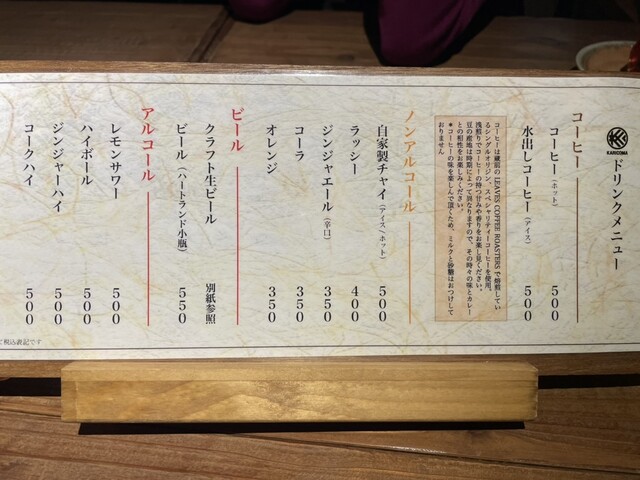 KARIGOMA
ドリンクメニュー
コーヒー
コーヒー（ホット） 500
水出しコーヒー（アイス） 500
コーヒーは蔵前の LEAVES COFFEE ROASTERS で焙煎してい
るシングルオリジン、スペシャリティーコーヒーを使用。
浅煎りでコーヒーの持つ甘みや香りをお楽しみください。
豆の産地は時期によって異なりますので、その時々の味とカレー
との相性をお楽しみください。
＊コーヒーの味を楽しんで頂くため、ミルクと砂糖はおつけして
おりません
ノンアルコール
自家製チャイ（アイス/ホット） 500
ラッシー 400
ジンジャエール（辛口） 350
コーラ 350
オレンジ 350
ビール
クラフト生ビール 別紙参照
ビール（ハートランド小瓶） 550
アルコール
レモンサワー 500
ハイボール 500
ジンジャーハイ 500
コークハイ 500
て税込表記です